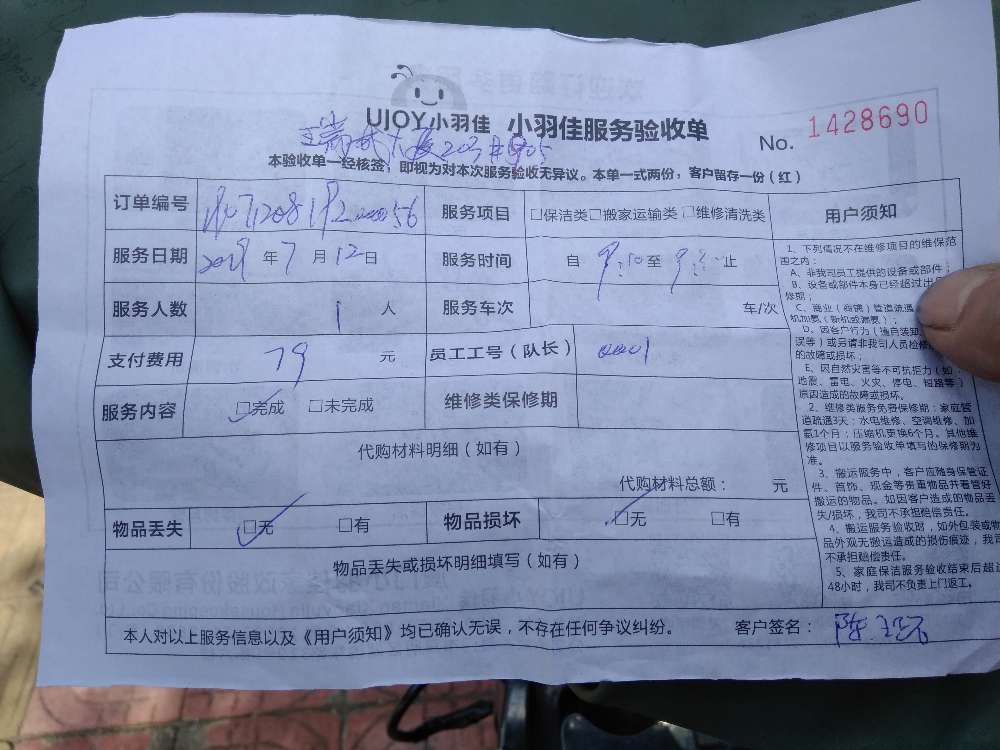 UJOY小羽佳 小羽佳服务验收单
No. 1428690
本验收单一经核签，即视为对本次服务验收无异议。本单一式两份，客户留存一份（红）
订单编号
服务项目 □保洁类□搬家运输类□维修清洗类
用户须知
服务日期 年7月12日
服务时间 自 至 止
服务人数 1 人
服务车次 车/次
支付费用 79 元
员工工号（队长） 0001
服务内容 □完成 □未完成
维修类保修期
代购材料明细（如有）
代购材料总额： 元
物品丢失 □无 □有
物品损坏 □无 □有
物品丢失或损坏明细填写（如有）
本人对以上服务信息以及《用户须知》均已确认无误，不存在任何争议纠纷。 客户签名：
1、下列情况不在维修项目的维保范
围之内：
A、非我司员工提供的设备或部件；
B、设备或部件本身已经超过
修期；
C、商业（商铺）管道疏通
D、因客户行为
误等）或另请非我司人员检修
的故障或损坏；
E、因自然灾害等不可抗拒力（如：
地震、雷电、火灾、停电、短路等）
原因造成的故障或损坏。
2、维修类服务免费保修期：家庭管
道疏通3天；水电维修、空调维修、加
氨1个月；压缩机更换6个月。其他维
修项目以服务验收单填写的保修期为
准。
3、搬运服务中，客户应随身保管证
件、首饰、现金等贵重物品并看管好
搬运的物品。如因客户造成的物品丢
失/损坏，我司不承担赔偿责任。
4、搬运服务验收时，如外包装或物
品外观无搬运造成的损伤痕迹，我司
不承担赔偿责任。
5、家庭保洁服务验收结束后超过
48小时，我司不负责上门返工。